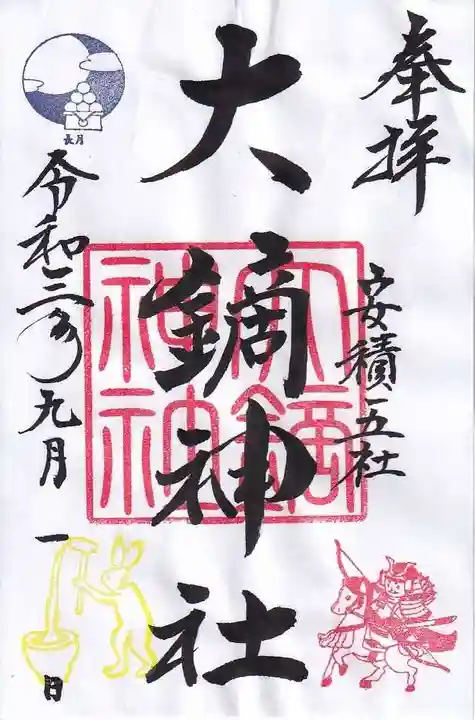 奉拝
安積五社
大鏑神社
大鏑神社
令和三年九月一日
長月